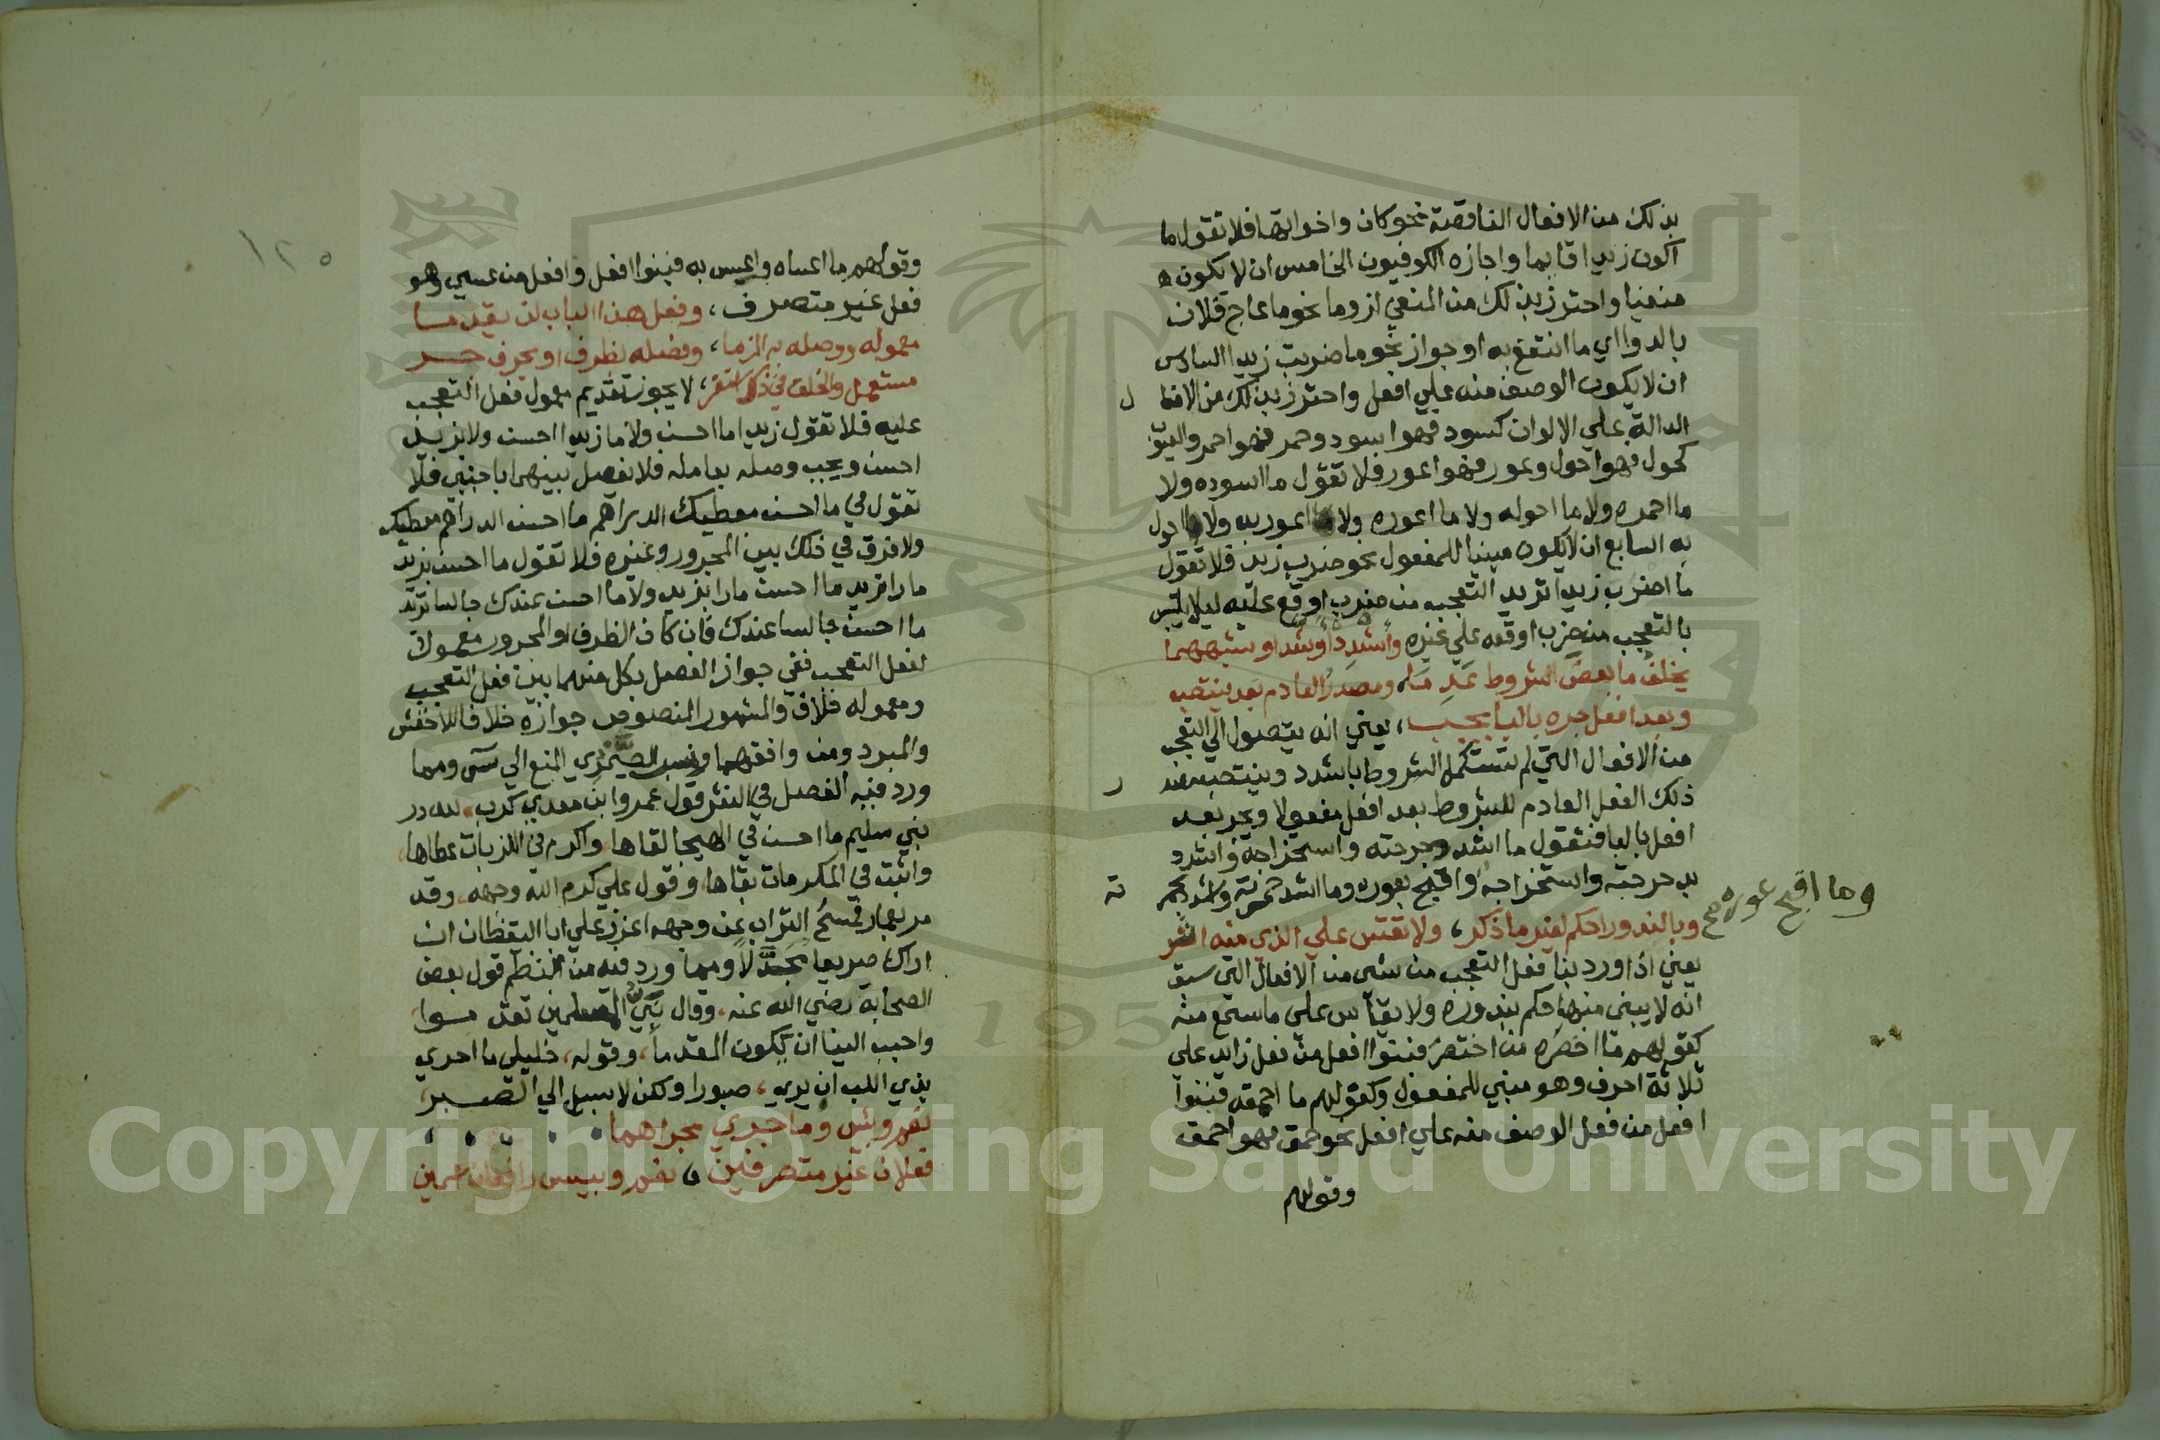 بذلك من الافعال الناقصة نحو كان واخواتها فلا تقول ما
اكون زيدا قايما واجازه الكوفيون الخامس ان لا يكون
منفيا واحترز بذلك من المنفي لزوما نحو ما عاج فلان
بالدوا اي ما انتفع به او جوازا نحو ما ضربت زيدا السادس
ان لا يكون الوصف منه علي افعل واحترز بذلك من الافعا
ل
الدالة علي الالوان كسود فهو اسود وحمر فهو احمر والعيوب
كحول فهو احول وعور فهو اعور فلا تقول ما اسوده ولا
ما احمره ولا ما احوله ولا ما اعوره ولا اعور به ولا احول
به السابع ان لا يكون مبنيا للمفعول نحو ضرب زيد فلا تقول
ما اضرب زيدا تريد التعجب من ضرب اوقع عليه ليلا يلتبس
بالتعجب من ضرب اوقعه علي غيره واشدد او شد او شبههما
يخلف ما بعض الشروط عدما ومصدر العادم بعد ينتصب
وبعد افعل جره بالبا يجب، يعني انه يتوصل الي التعجب
من الافعال التي لم تستكمل الشروط باشدد وينتصب
ذلك الفعل العادم للشروط بعد افعل مفعولا ويجر بعد
ر
افعل بالبا فتقول ما اشد دحرجته واستخراجه واشدد
بدحرجته واستخراجه واقبح بعوره وما اشد حمرته واشدد بحمر
ته
وما اقبح عوره صح
وبالندور احكم لغير ما ذكر، ولا تقس علي الذي منه اثر
يعني اذا ورد بنا فعل التعجب من شي من الافعال التي سبق
انه لا يبنى منها حكم بندوره ولا يقاس على ما سمع منه
كقولهم ما اخصره من اختصر فبنوا افعل من فعل زايد علي
ثلاثة احرف وهو مبني للمفعول وكقولهم ما احمقه فبنوا
افعل من فعل الوصف منه علي افعل نحو حمق فهو احمق
وقولهم
١٢٥
وقولهم ما اعساه واعس به فبنوا افعل وافعل من عسي وهو
فعل غير متصرف، وفعل هذا الباب لن يقدما
معموله ووصله به الزما، وفصله بظرف او بحرف جر
مستعمل والخلف في ذاك استقر، لا يجوز تقديم معمول فعل التعجب
عليه فلا تقول زيدا ما احسن ولا ما زيدا احسن ولا بزيد
احسن ويجب وصله بعامله فلا يفصل بينهما باجنبي فلا
تقول في ما احسن معطيك الدراهم ما احسن الدراهم معطيك
ولا فرق في ذلك بين المجرور وغيره فلا تقول ما احسن بزيد
مارا تريد ما احسن مارا بزيد ولا ما احسن عندك جالسا تريد
ما احسن جالسا عندك فان كان الظرف او المجرور معمولا
لفعل التعجب ففي جواز الفصل بكل منهما بين فعل التعجب
ومعموله خلاف والمشهور المنصوص جوازه خلافا للاخفش
والمبرد ومن وافقهما ونسب الصيمري المنع الي س ومما
ورد فيه الفصل في النثر قول عمرو ابن معدي كرب، لله در
بني سليم ما احسن في الهيجا لقاها، واكرم في اللزبات عطاها،
واثبت في المكرمات بقاها، وقول علي كرم الله وجهه، وقد
مر بعمار فمسح التراب عن وجهه اعزز علي ابا اليقظان ان
اراك صريعا مجدلا ومما ورد فيه من النظم قول بعض
الصحابة رضي الله عنه، وقال نبي المسلمين تقدموا
واحبب الينا ان يكون المقدما، وقوله، خليلي ما احري
بذي اللب ان يري، صبورا ولكن لا سبيل الي الصبر،
نعم وبئس وما جري مجراهما
فعلان غير متصرفين، نعم وبيس رافعان اسمين